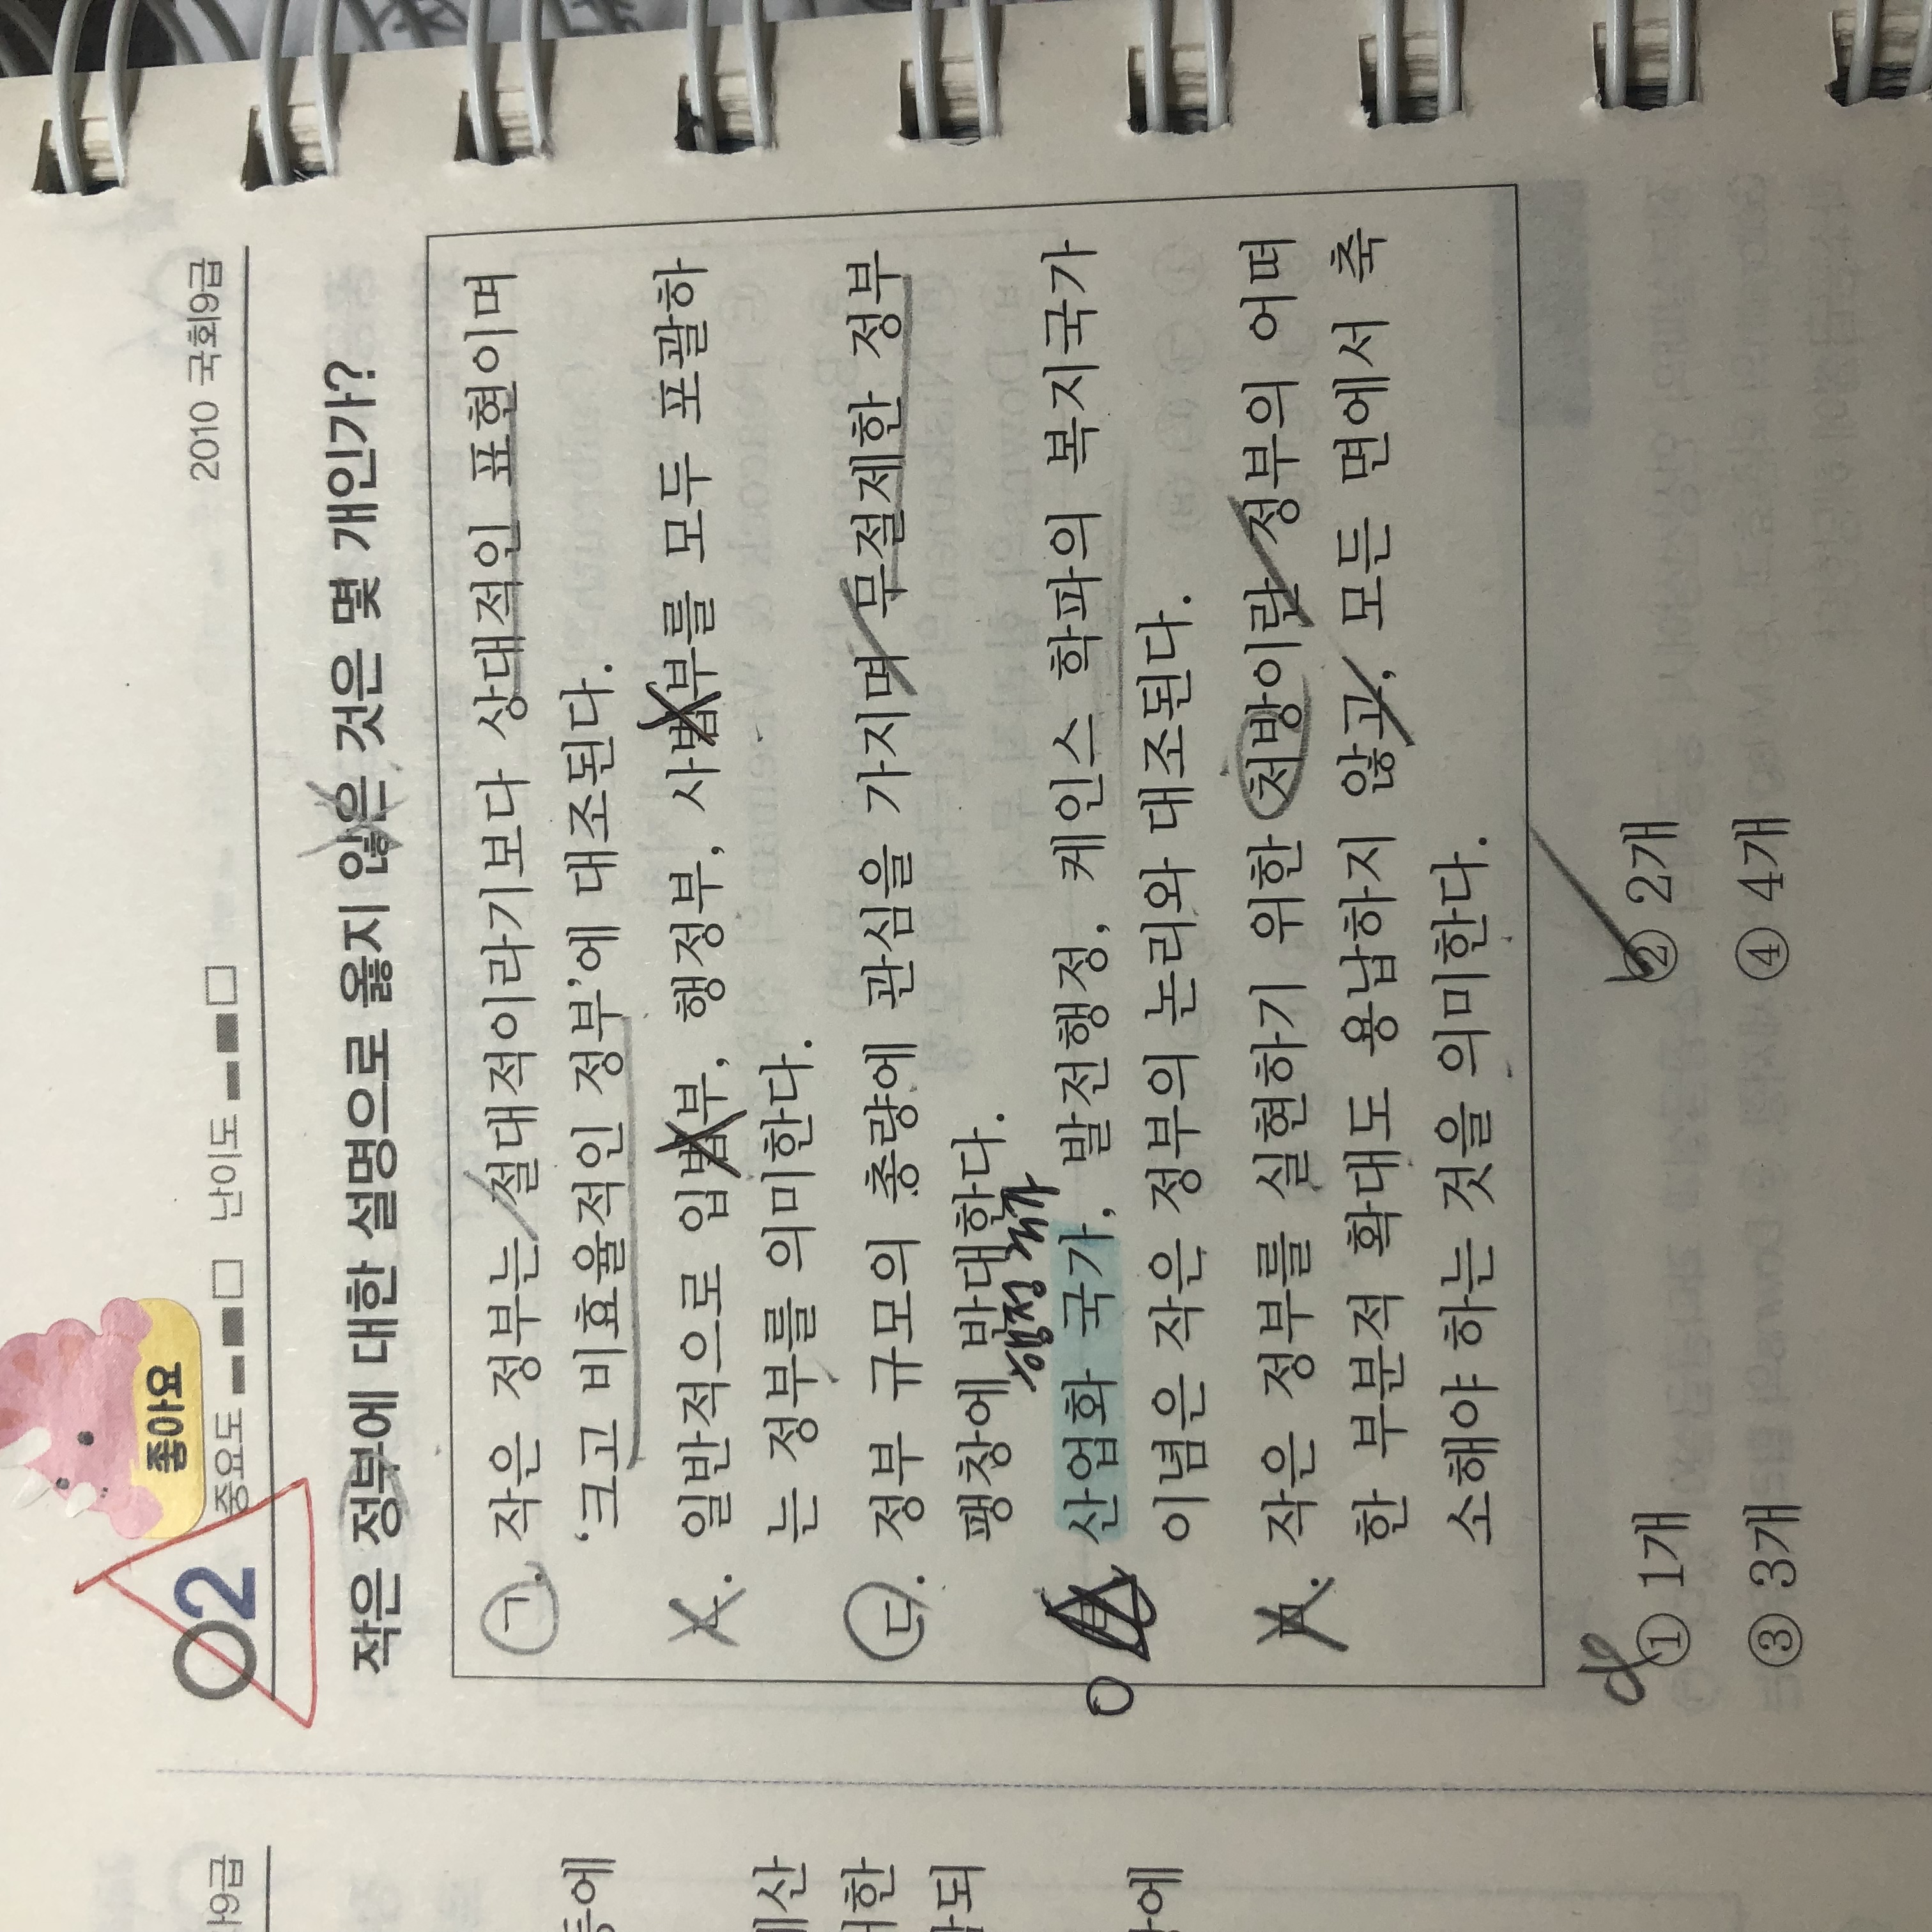 좋아요
02
중요도 난이도 2010 국회9급
작은 정부에 대한 설명으로 옳지 않은 것은 몇 개인가?
ㄱ. 작은 정부는 절대적이라기보다 상대적인 표현이며
‘크고 비효율적인 정부’에 대조된다.
ㄴ. 일반적으로 입법부, 행정부, 사법부를 모두 포괄하
는 정부를 의미한다.
ㄷ. 정부 규모의 총량에 관심을 가지며 무절제한 정부
팽창에 반대한다.
행정국가
ㄹ. 산업화 국가, 발전행정, 케인스 학파의 복지국가
이념은 작은 정부의 논리와 대조된다.
ㅁ. 작은 정부를 실현하기 위한 처방이란 정부의 어떠
한 부분적 확대도 용납하지 않고, 모든 면에서 축
소해야 하는 것을 의미한다.
① 1개 ② 2개
③ 3개 ④ 4개
9급
에
산
한
되
에